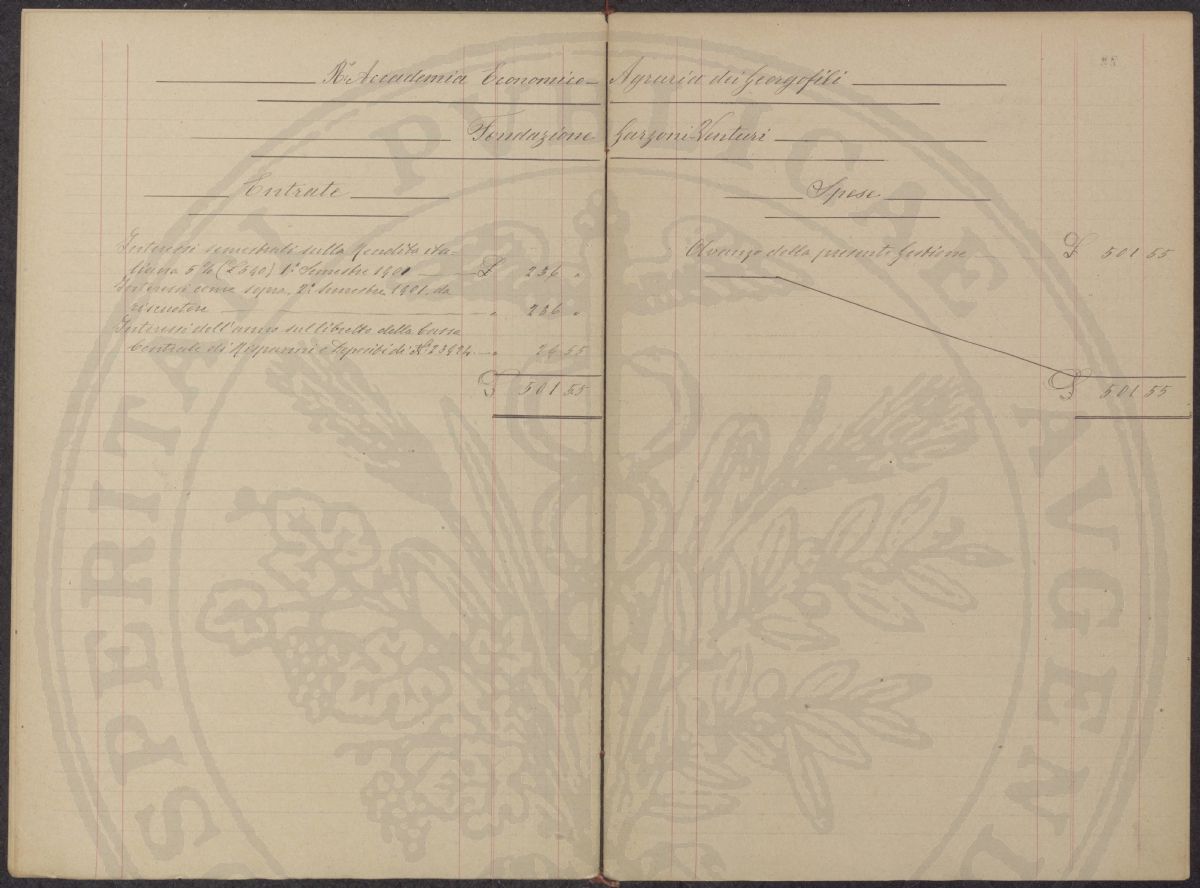 R.ª Accademia Economico-Agraria dei Georgofili
55
Fondazione Garzoni Venturi
Entrate
Interessi semestrali sulla Rendita ita-
liana 5% (L 590) 1° Semestre 1901 £ 236 "
Interessi come sopra, 2° Semestre 1901, da
riscuotere " 236 "
Interessi dell'anno sul libretto della Cassa
Centrale di Risparmi e Depositi di N.° 23424 " 29 55
£ 501 55
Spese
Avanzo della presente Gestione £ 501 55
£ 501 55
SPERITATI PVBLICAE AVGEND